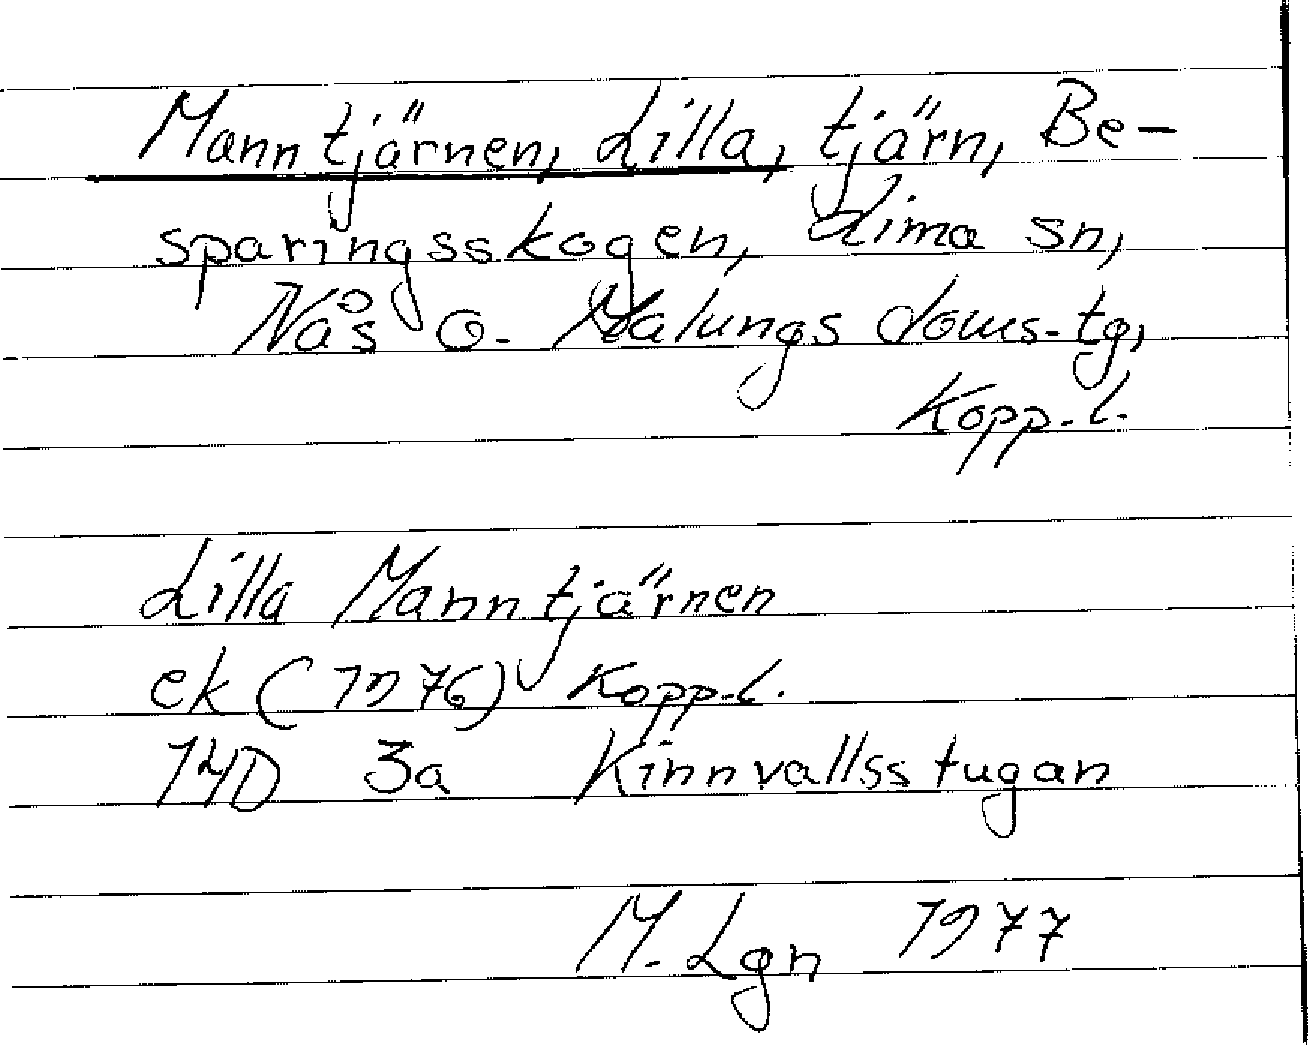 Manntjärnen, Lilla, tjärn, Be-
sparingsskogen, Lima sn,
Nås o. Malungs doms-tg,
Kopp. l.
Lilla Manntjärnen
ek (1976) Kopp. l.
14D 3a Kinnvallsstugan
M. Lgn 1977